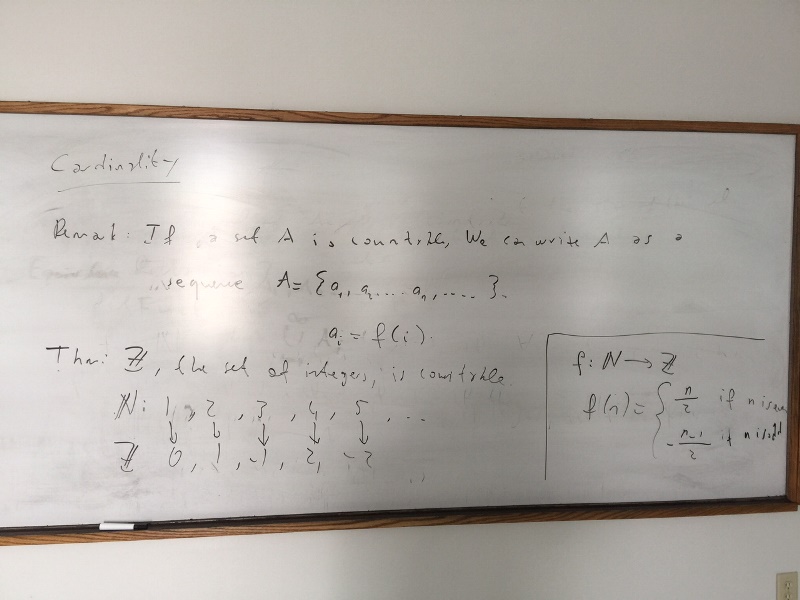 Cardinality
Remark: If a set A is countable, We can write A as a
sequence A = {a₁, a₂, ... aₙ, .... }.
aᵢ = f(i).
Thm: ℤ, the set of integers, is countable.
ℕ: 1, 2, 3, 4, 5, ...
↓ ↓ ↓ ↓ ↓
ℤ 0, 1, -1, 2, -2
f: ℕ → ℤ
f(n) = { n/2 if n is even
-(n-1)/2 if n is odd